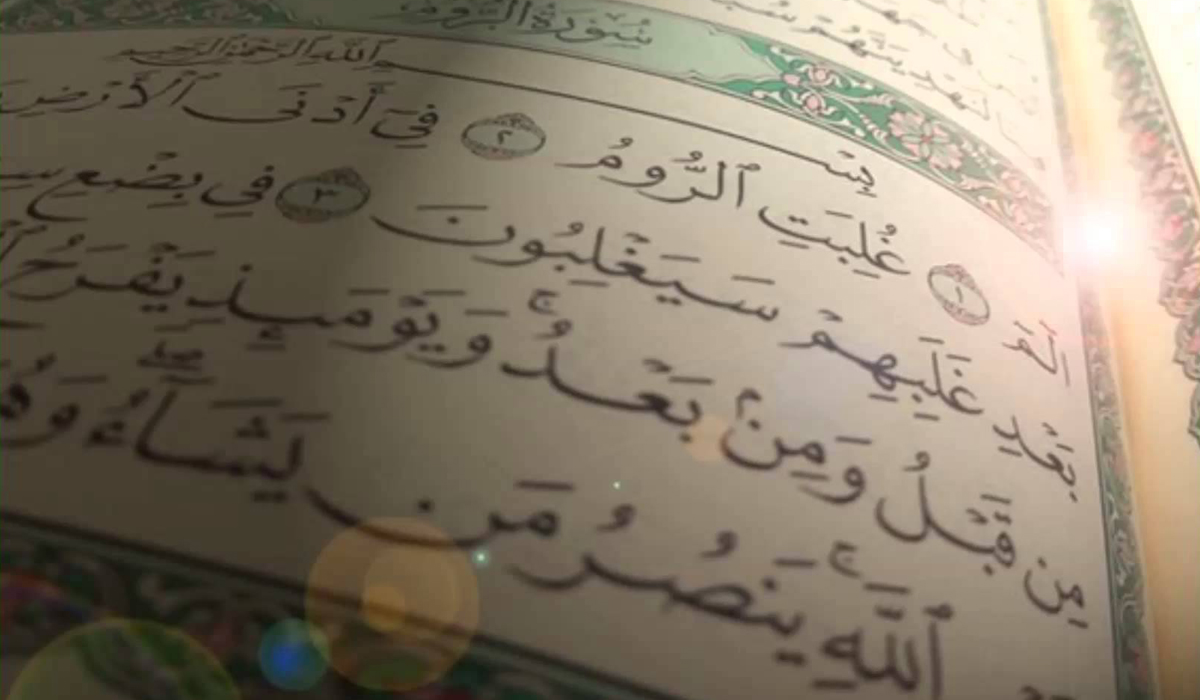 سُورَةُ الرُّومِ
بِسْمِ ٱللَّهِ ٱلرَّحْمَٰنِ ٱلرَّحِيمِ
الٓمٓ ١ غُلِبَتِ ٱلرُّومُ ٢ فِىٓ أَدْنَى ٱلْأَرْضِ
بَعْدِ غَلَبِهِمْ سَيَغْلِبُونَ ٣ فِى بِضْعِ
مِن قَبْلُ وَمِنۢ بَعْدُۚ وَيَوْمَئِذٍ يَفْرَحُ
ٱللَّهِۚ يَنصُرُ مَن يَشَآءُۖ